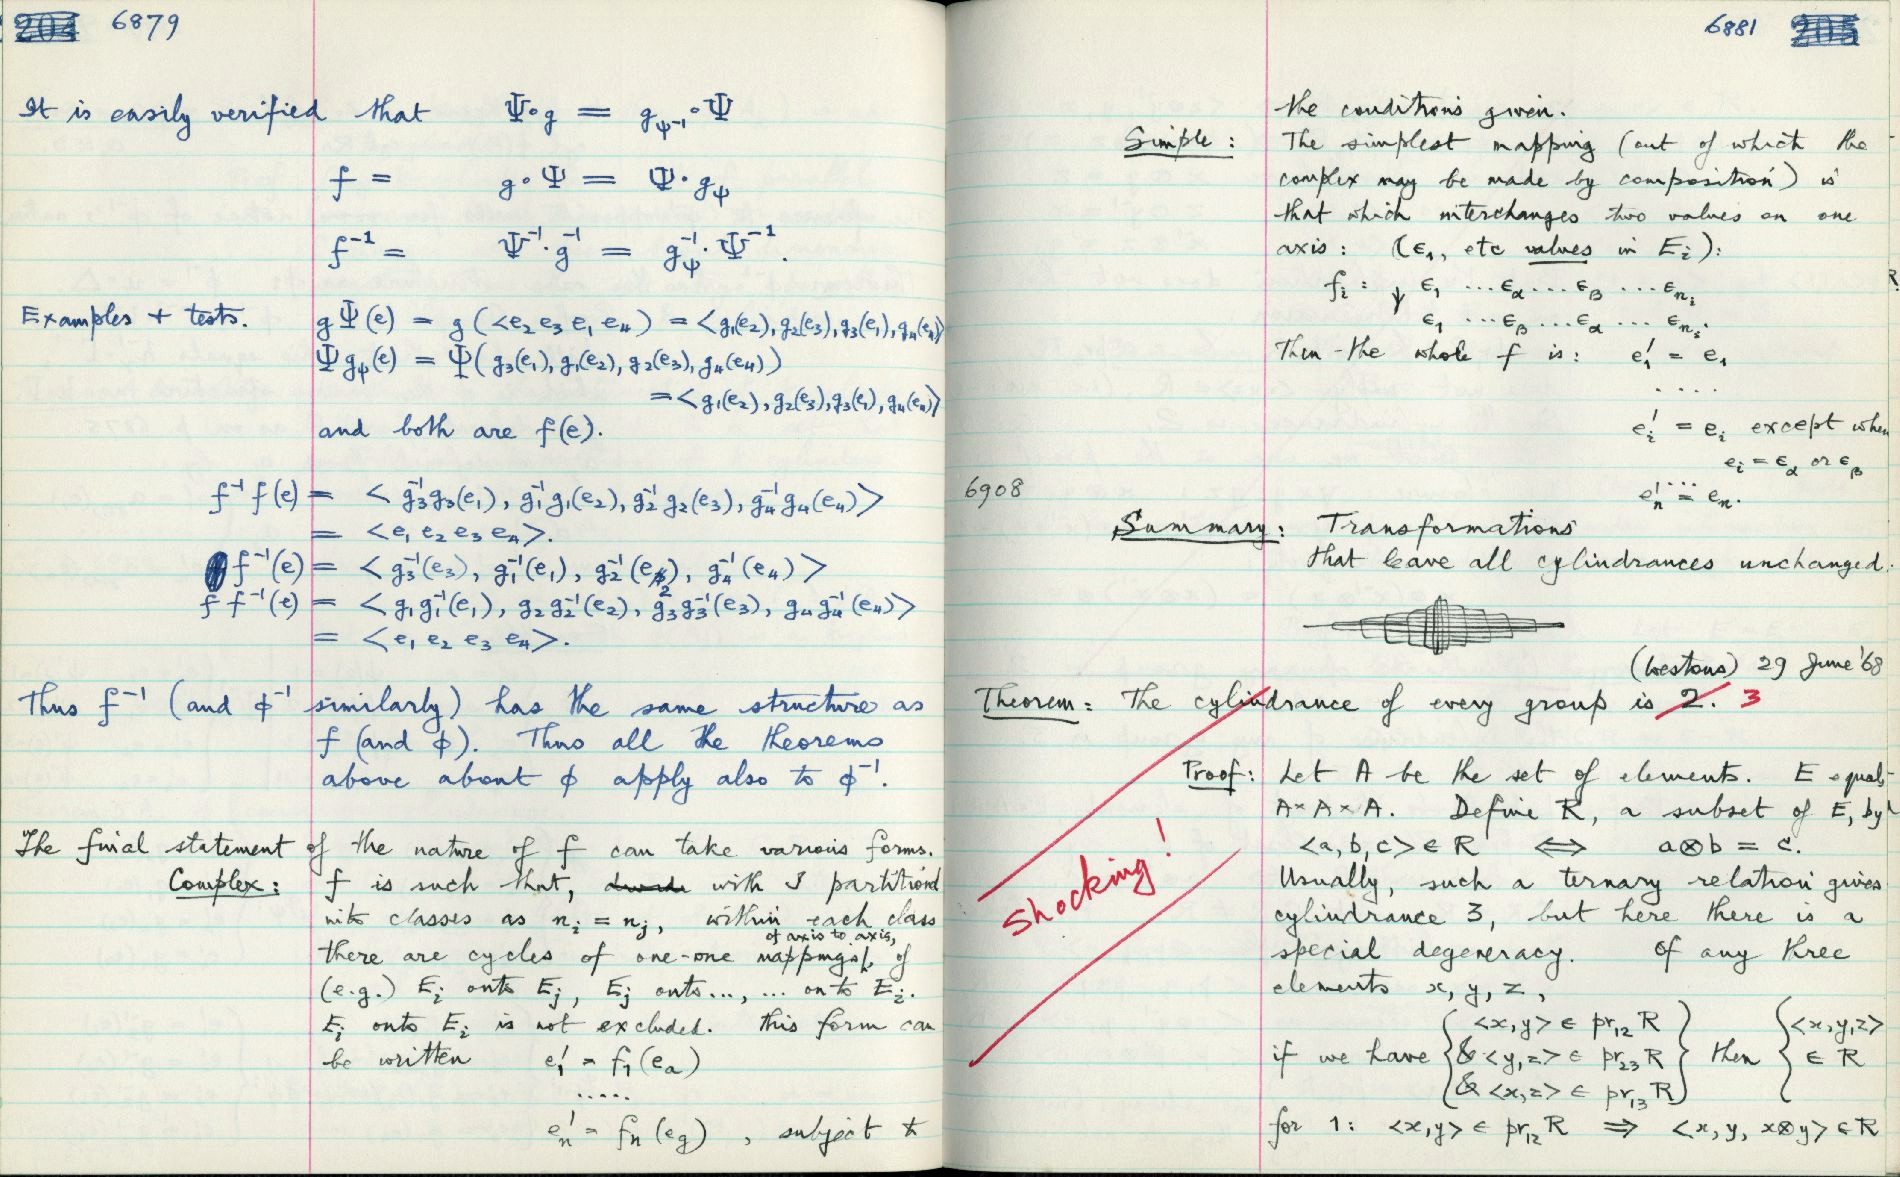 204 6879
It is easily verified that Ψ∘g = g_ψ⁻¹∘Ψ
f = g∘Ψ = Ψ·g_ψ
f⁻¹ = Ψ⁻¹·g⁻¹ = g_ψ⁻¹·Ψ⁻¹.
Examples + tests. gΨ(e) = g(<e₂ e₃ e₁ e₄) = <g₁(e₂), g₂(e₃), g₃(e₁), g₄(e₄)>
Ψg_ψ(e) = Ψ(g₃(e₁), g₁(e₂), g₂(e₃), g₄(e₄))
= <g₁(e₂), g₂(e₃), g₃(e₁), g₄(e₄)>
and both are f(e).
f⁻¹f(e) = <g₃⁻¹g₃(e₁), g₁⁻¹g₁(e₂), g₂⁻¹g₂(e₃), g₄⁻¹g₄(e₄)>
= <e₁ e₂ e₃ e₄>.
f⁻¹(e) = <g₃⁻¹(e₃), g₁⁻¹(e₁), g₂⁻¹(e₂), g₄⁻¹(e₄)>
f f⁻¹(e) = <g₁g₁⁻¹(e₁), g₂g₂⁻¹(e₂), g₃g₃⁻¹(e₃), g₄g₄⁻¹(e₄)>
= <e₁ e₂ e₃ e₄>.
Thus f⁻¹ (and φ⁻¹ similarly) has the same structure as
f (and φ). Thus all the theorems
above about φ apply also to φ⁻¹.
The final statement of the nature of f can take various forms.
Complex: f is such that, with I partitiond
into classes as nᵢ = nⱼ, within each class
of axis to axis,
there are cycles of one-one mappings, of
(e.g.) Eᵢ onto Eⱼ, Eⱼ onto ..., ... onto Eᵢ.
Eᵢ onto Eᵢ is not excluded. This form can
be written e₁' = f₁(e_a)
.....
eₙ' = fₙ(e_g), subject to
6881 205
the conditions given.
Simple: The simplest mapping (out of which the
complex may be made by composition) is
that which interchanges two values on one
axis: (ϵ₁, etc values in Eᵢ):
fᵢ: ↓ ϵ₁ ...ϵ_α...ϵ_β ...ϵ_nᵢ
ϵ₁ ...ϵ_β...ϵ_α... ϵ_nᵢ.
Then the whole f is: e₁' = e₁
....
eᵢ' = eᵢ except when
eᵢ = ϵ_α or ϵ_β
...
6908
eₙ' = eₙ.
Summary: Transformations
that leave all cylindrances unchanged.
(Westons) 29 June '68
Theorem: The cylindrance of every group is 2. 3
Proof: Let A be the set of elements. E equals
A×A×A. Define R, a subset of E, by
<a,b,c> ∈ R ⟺ a⊗b = c.
Shocking!
Usually, such a ternary relation gives
cylindrance 3, but here there is a
special degeneracy. Of any three
elements x, y, z,
<x,y> ∈ pr₁₂R <x,y,z>
if we have & <y,z> ∈ pr₂₃R then ∈ R
& <x,z> ∈ pr₁₃R
for 1: <x,y> ∈ pr₁₂R ⇒ <x, y, x⊗y> ∈ R